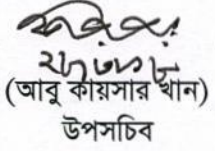 (আবু কায়সার খান)
উপসচিব